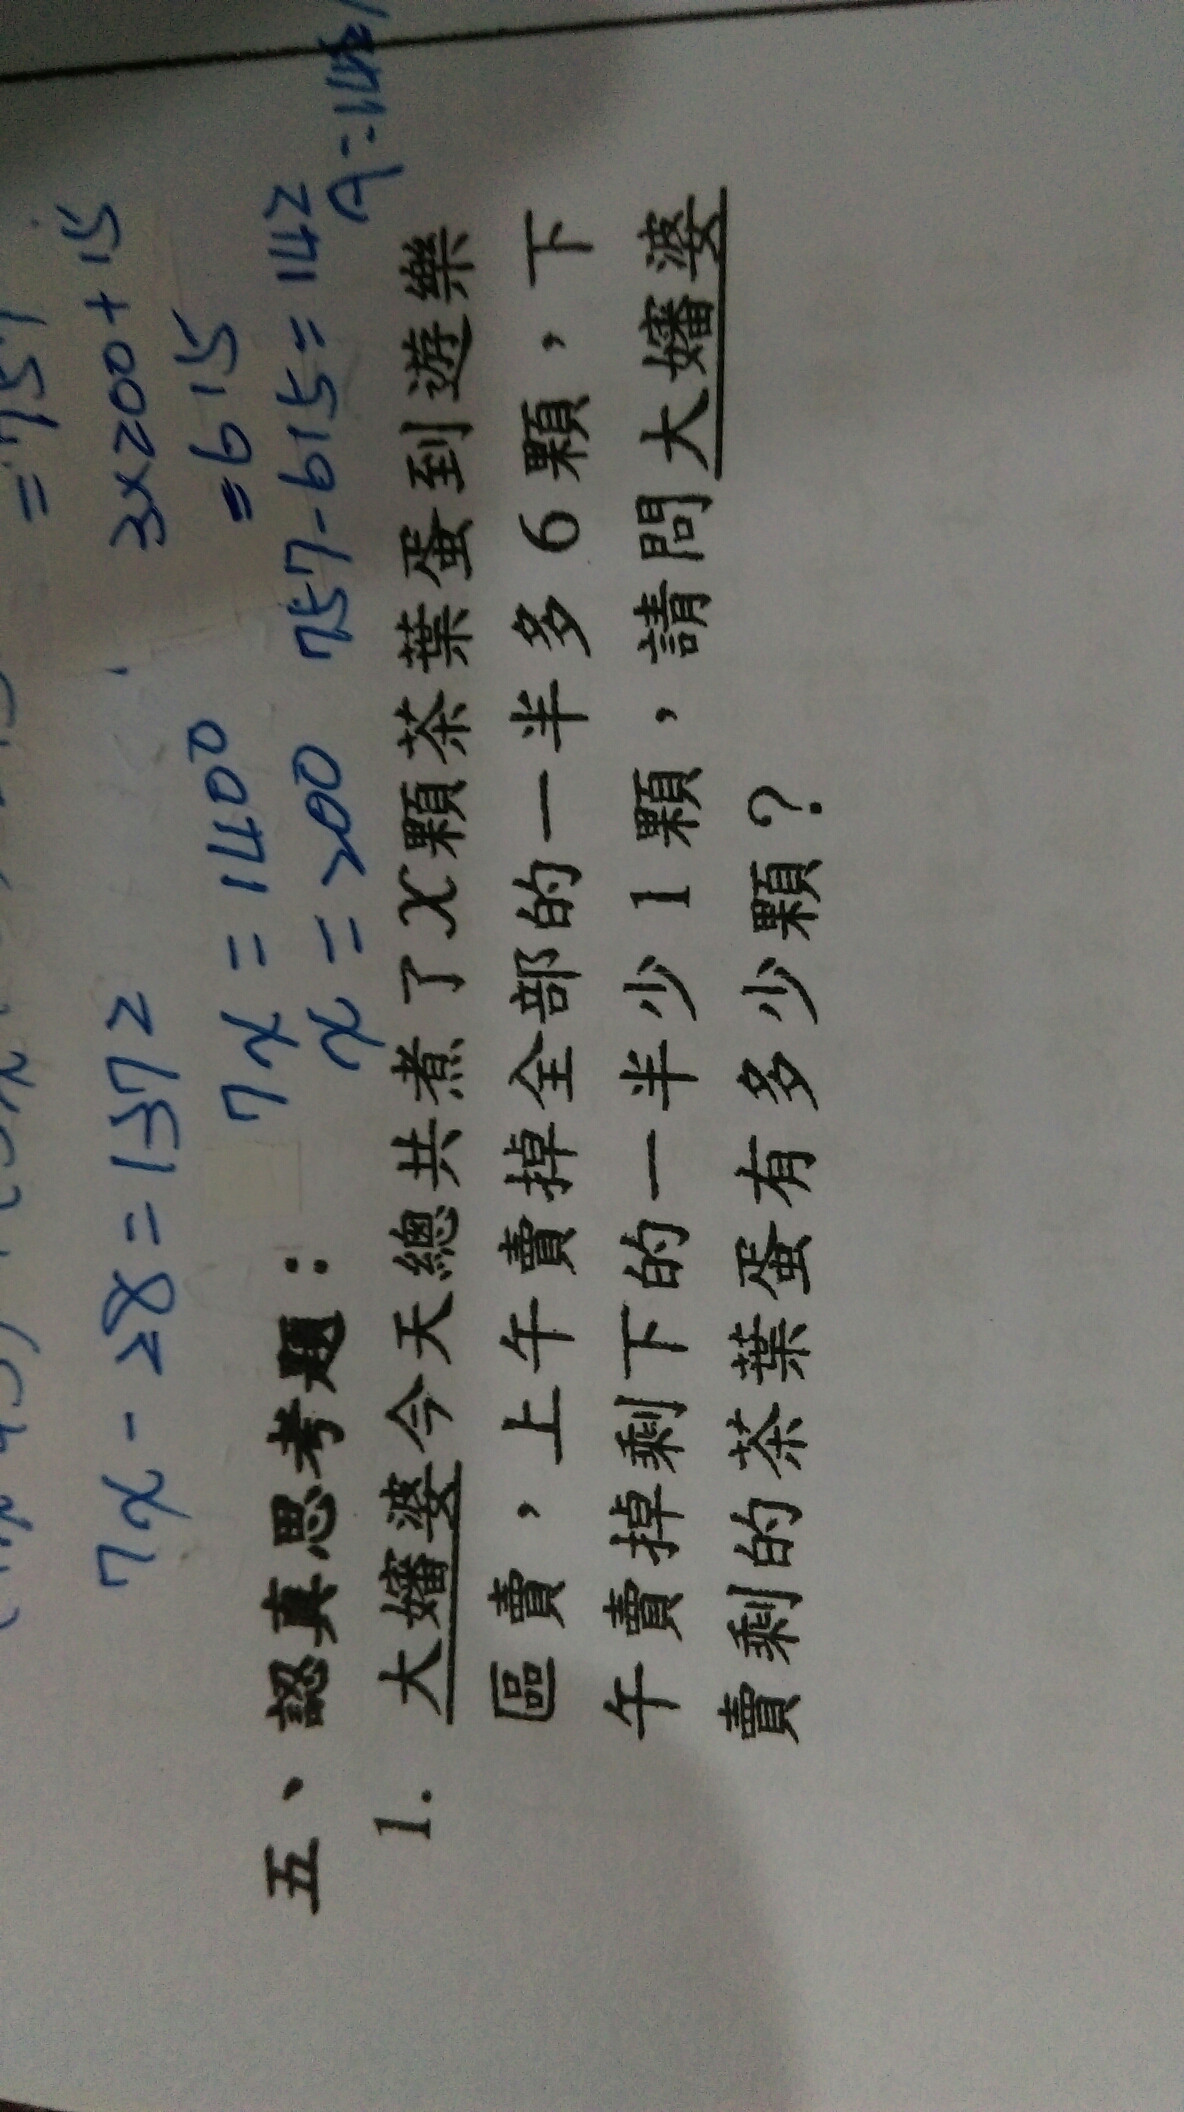 3×200+15
7x-28=1372
=615
7x=1400
x=200 757-615=142
五、認真思考題：
1. 大嬸婆今天總共煮了x顆茶葉蛋到遊樂
區賣，上午賣掉全部的一半多6顆，下
午賣掉剩下的一半少1顆，請問大嬸婆
賣剩的茶葉蛋有多少顆？